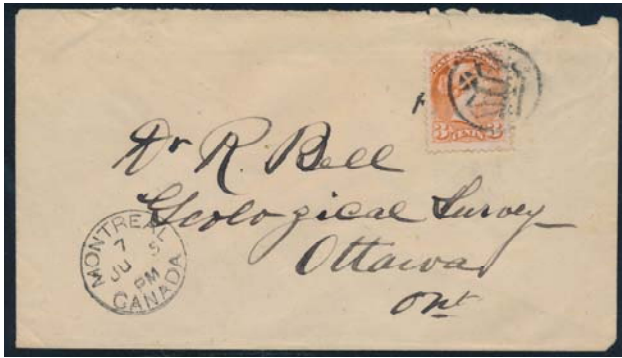 3 CENTS 3
Dr R. Bell
Geological Survey
Ottawa
Ont
MONTREAL
7
JU
PM
CANADA